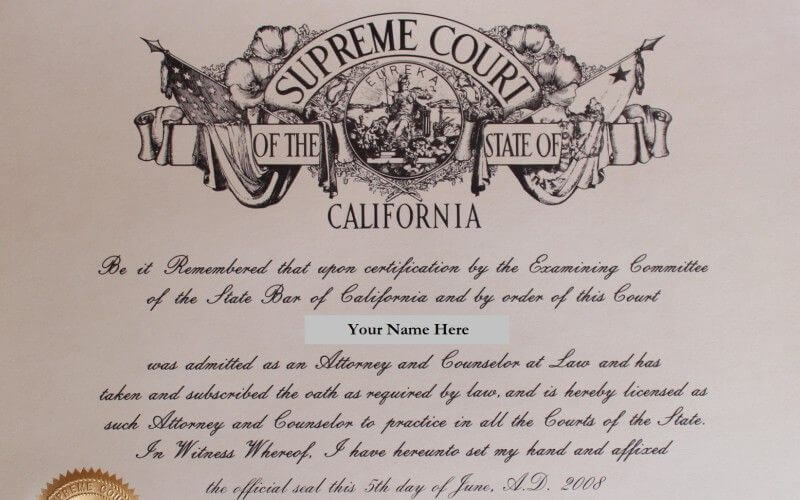 SUPREME COURT
EUREKA
OF THE
STATE OF
CALIFORNIA
Be it Remembered that upon certification by the Examining Committee
of the State Bar of California and by order of this Court
Your Name Here
was admitted as an Attorney and Counselor at Law and has
taken and subscribed the oath as required by law, and is hereby licensed as
such Attorney and Counselor to practice in all the Courts of the State.
In Witness Whereof, I have hereunto set my hand and affixed
the official seal this 5th day of June, A.D. 2008
SUPREME COU